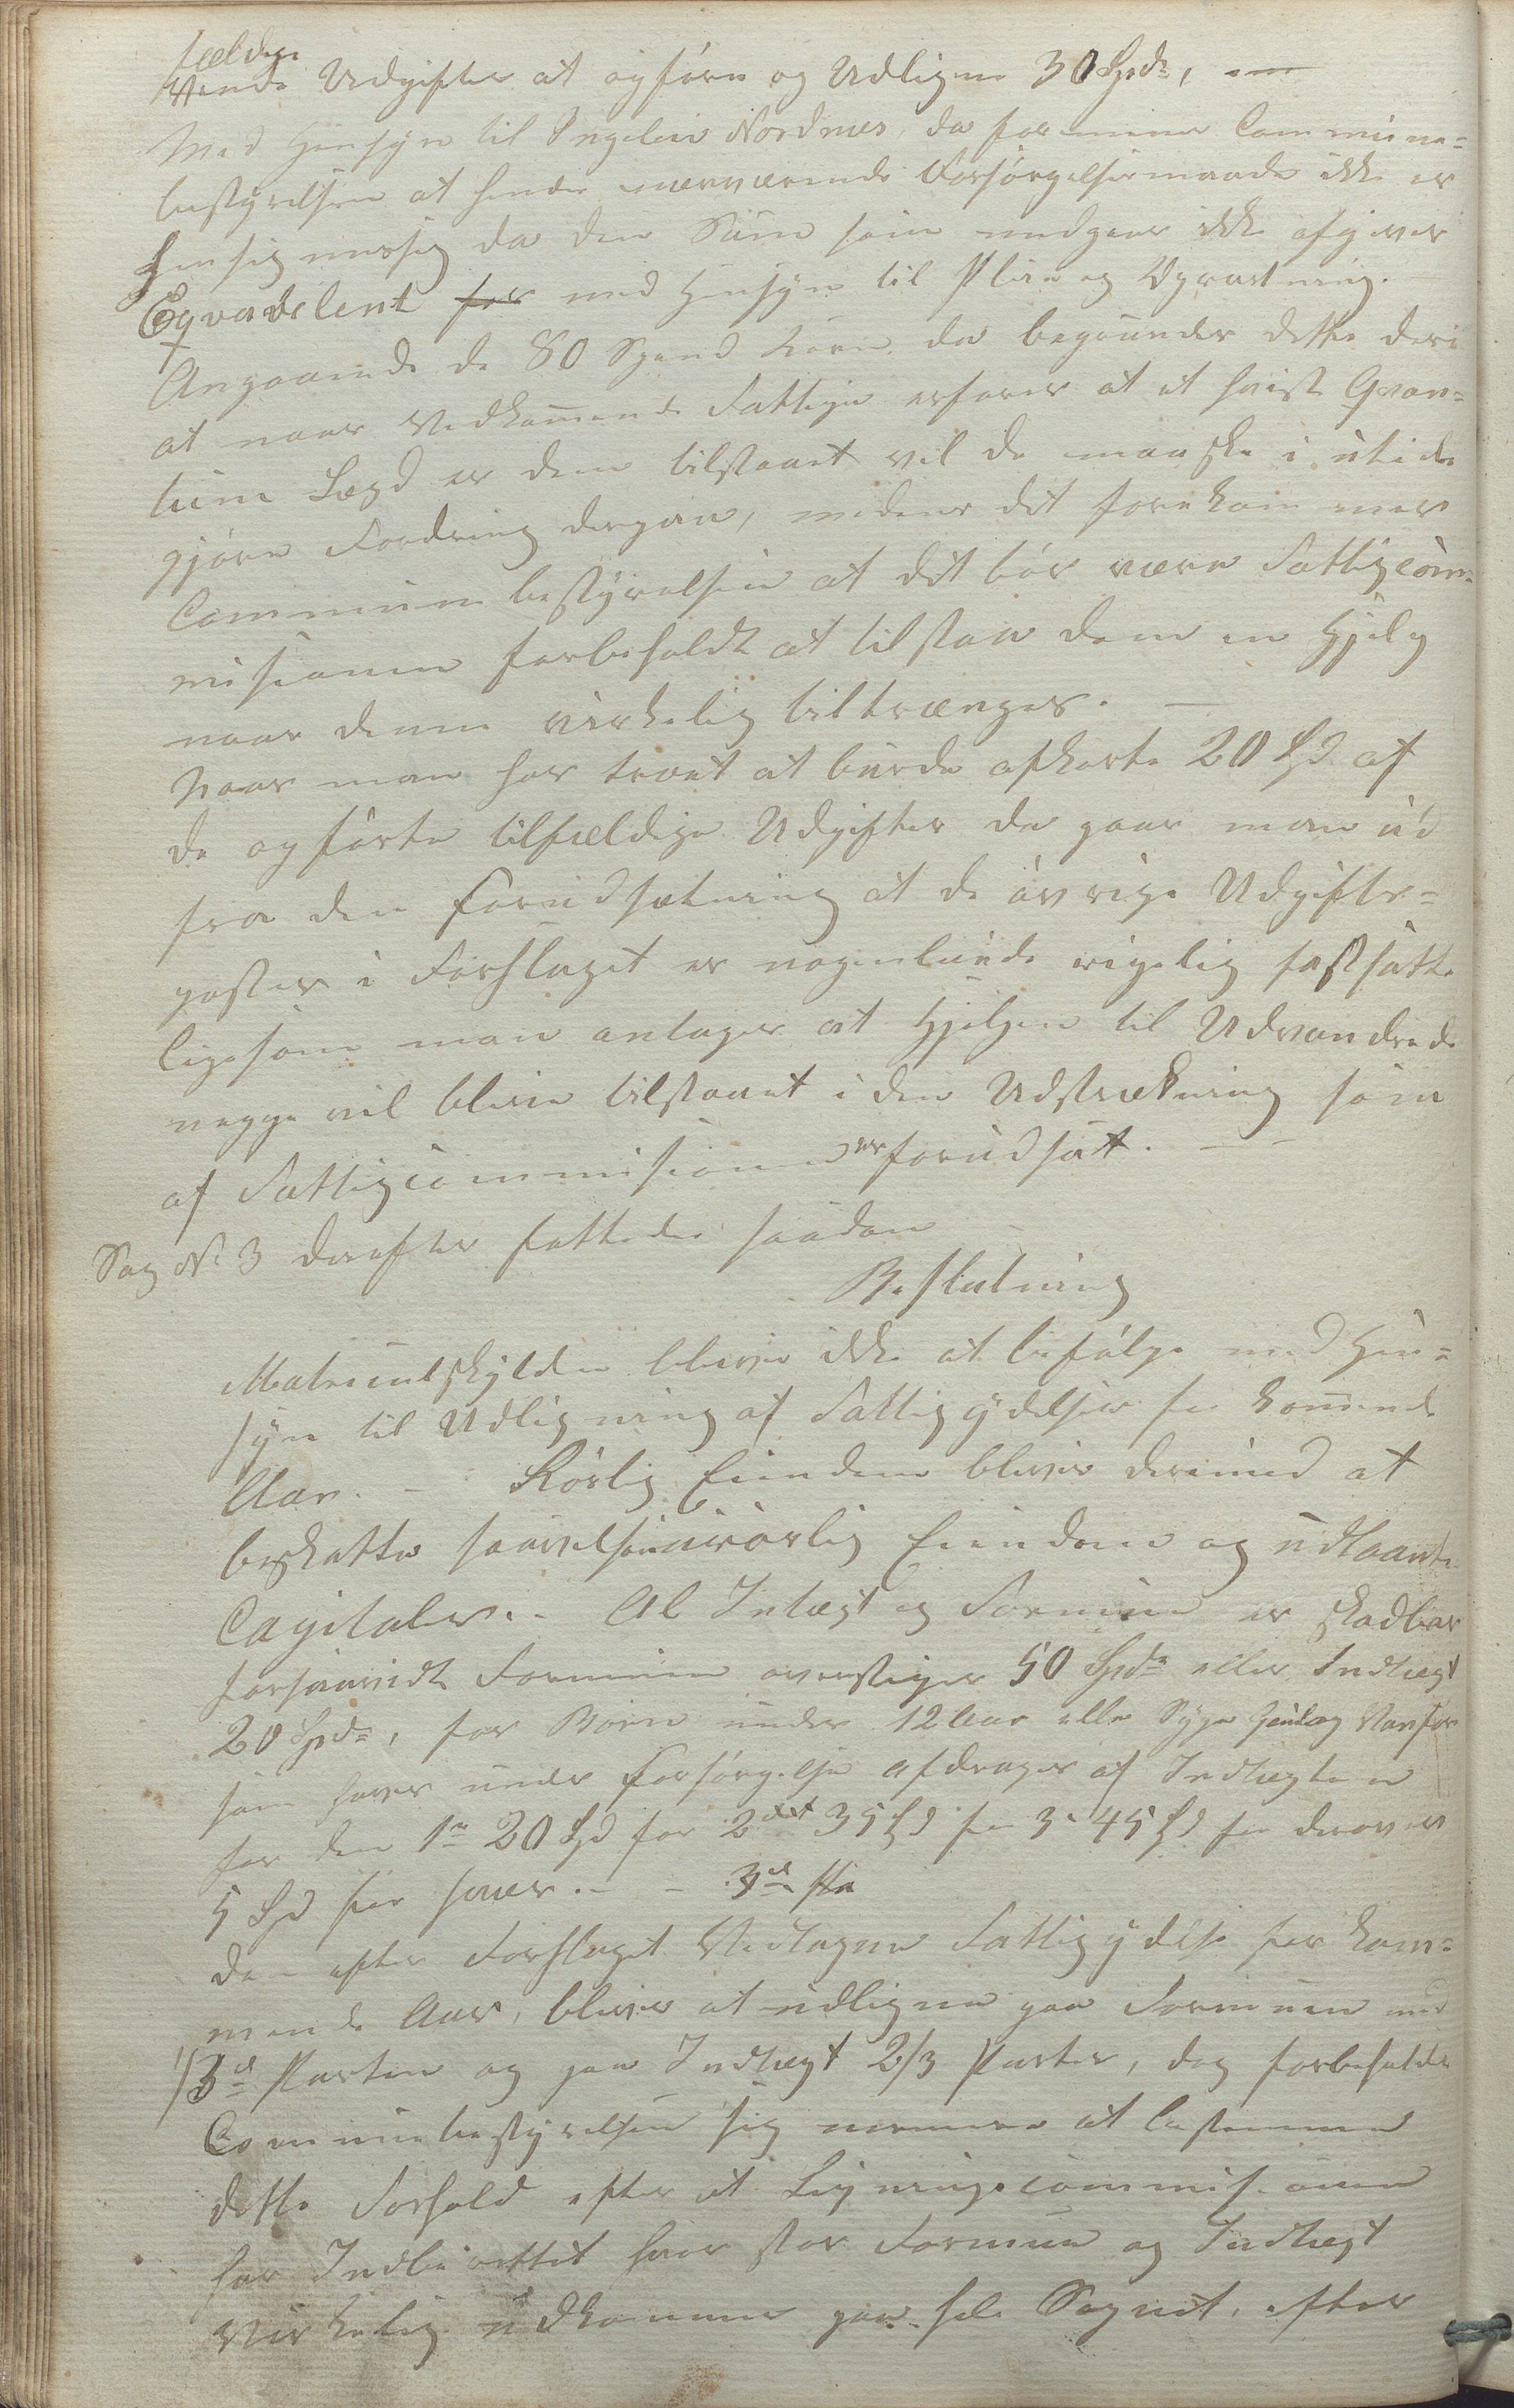 fældige
Vende Udgifter at opføre og Udligne 30 Spd:,
Med Hensyn til Ingeleiv Nordnes, da formener Commune=
bestyrelsen at hendes nærværende Forsørgelsesmaade ikke er
Hensigmessig da den Sum som medgaar ikke afgiver
Eqvadelent for med Hensyn til Pleie og Opvartning.
Angaaende de 80 Spand Korn, da begrunder dette deri
at naar Vedkommende Fattige erfarer at et hvist Qvan=
tum Sæd er dem tilstaaet vil de maaske i utide
gjøre Fordring derpaa, medens det forekommer
Communebestyrelsen at det bør være Fattigcom=
misionen forbeholdt at tilstaa dem en Hjelp
naar denne virkelig tiltrænges. —
Naar man har troet at burde afkorte 20 Spd af
de opførte tilfældige Udgifter da gaar man ud
fra den Forudsætning at de øvrige Udgifts=
poster i Forslaget er nogenlunde rigelig fastsatte
ligesom man antager at Hjelpen til Udvandrede
neppe vil blive tilstaaet i den Udstrækning som
af Fattigcommisionen er forudsat. —
Sag No 3 derefter fattedes saadan
Beslutning
Matriculskylden bliver ikke at befølge med Hen=
syn til Udligning af Fattigydelser for kommende
Aar. – Rørlig Eiendom bliver derimod at
beskatte saavelsom urørlig Eiendom og udlaante
Capitaler. – Al Intægt og Formue er skadbar
forsaavidt Formuen overstiger 50 Spd: eller Indtægt
20 Spd:, for Børn under 12 Aar eller Syge og Vanføre
som haves under Forsørgelse afdrages af Indtægten
for den 1e 20 Spd for 2det 35 Spd for 3e 45 Spd for derover
5 Spd for hver. – – 3d
den efter Forslaget Vedtagne Fattigydelse for kom=
mende Aar, bliver at udligne paa Formuen med
1/3d Parten og paa Indtægt 2/3 Parter, dog forbeholder
Communebestyrelsen sig nermere at bestemme
dette Forhold efter at Ligningscommisionen
har Indberettet hvor stor Formue og Indtægt
Virkelig udkommer paa hele Sognet, efter